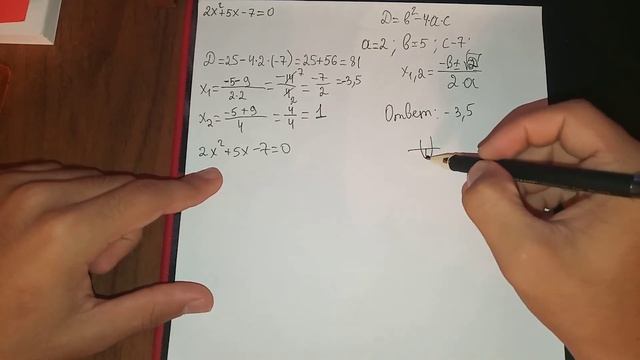 2x²+5x-7=0
D=b²-4a·c
a=2; b=5; c-7
D=25-4·2·(-7)=25+56=81
x₁=(-5-9)/(2·2)=-14/4=-7/2=-3,5
x₁,₂=(-b±√D)/(2a)
x₂=(-5+9)/4=4/4=1
Ответ: -3,5
2x²+5x-7=0